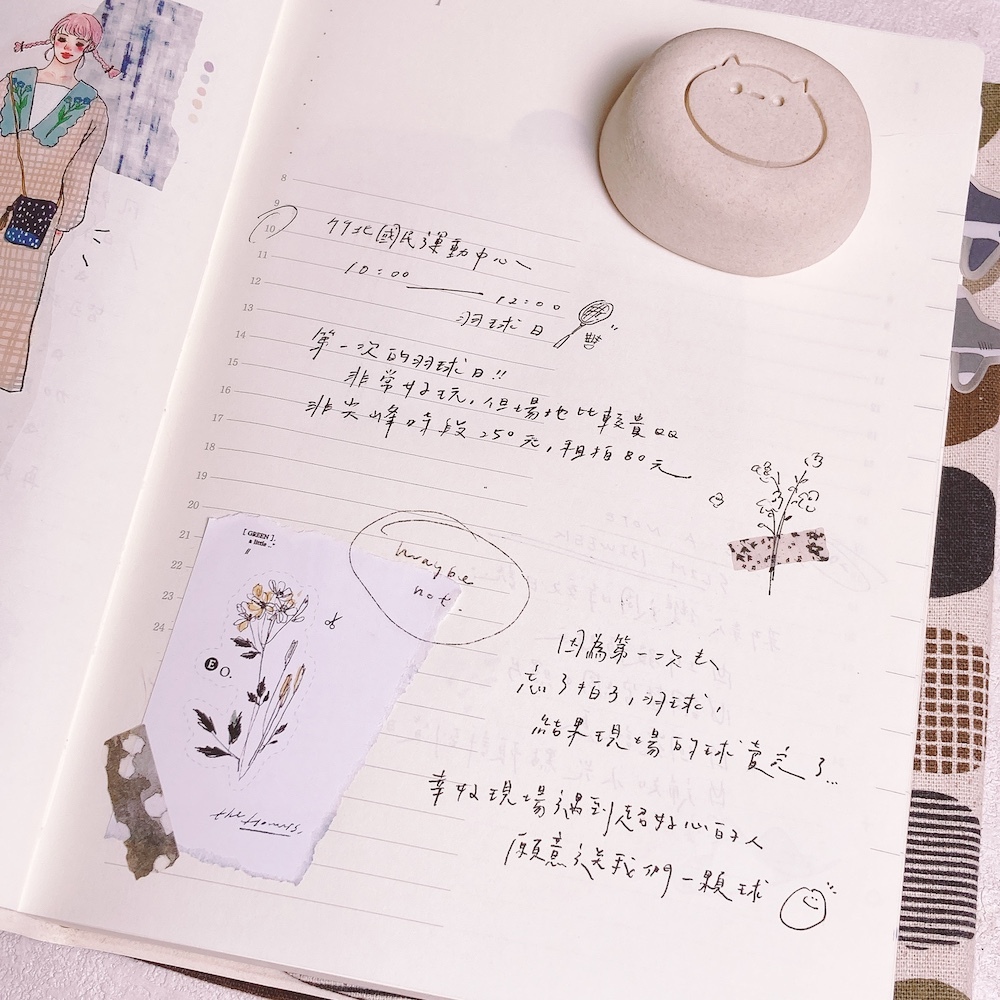 8
9
10
11
12
13
14
15
16
17
18
19
20
21
22
23
24
竹北國民運動中心
10:00
12:00
羽球日
第一次的羽球日!!
非常好玩,但場地比較貴QQ
非尖峰時段250元,租拍80元
[ GREEN ].
a little _"
maybe
not.
E O.
the flowers.
因為第一次去
忘了拍子,羽球,
結果現場的球賣完了...
幸好現場遇到超好心的人
願意送我們一顆球